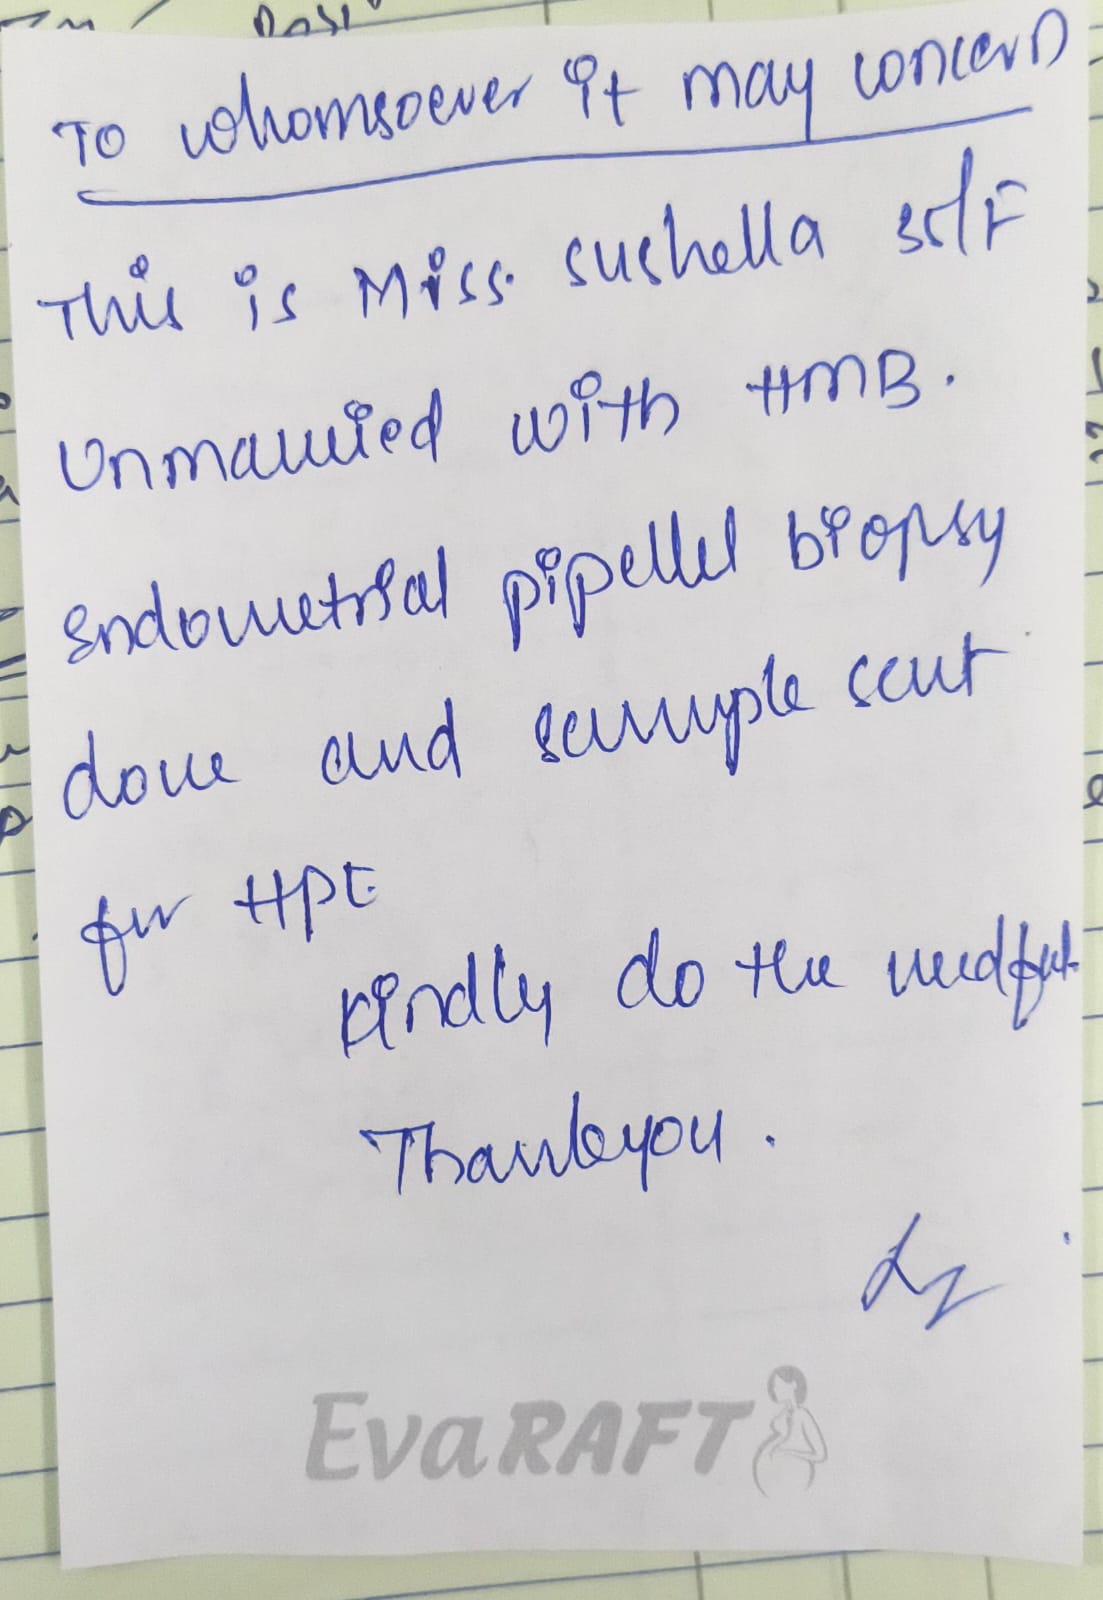 To whomsoever it may concern
This is Miss. Sushella 35/F
Unmarried with HMB.
Endometrial pipellel biopsy
done and sample sent
for HPE
Kindly do the needful.
Thankyou.
EvaRAFT